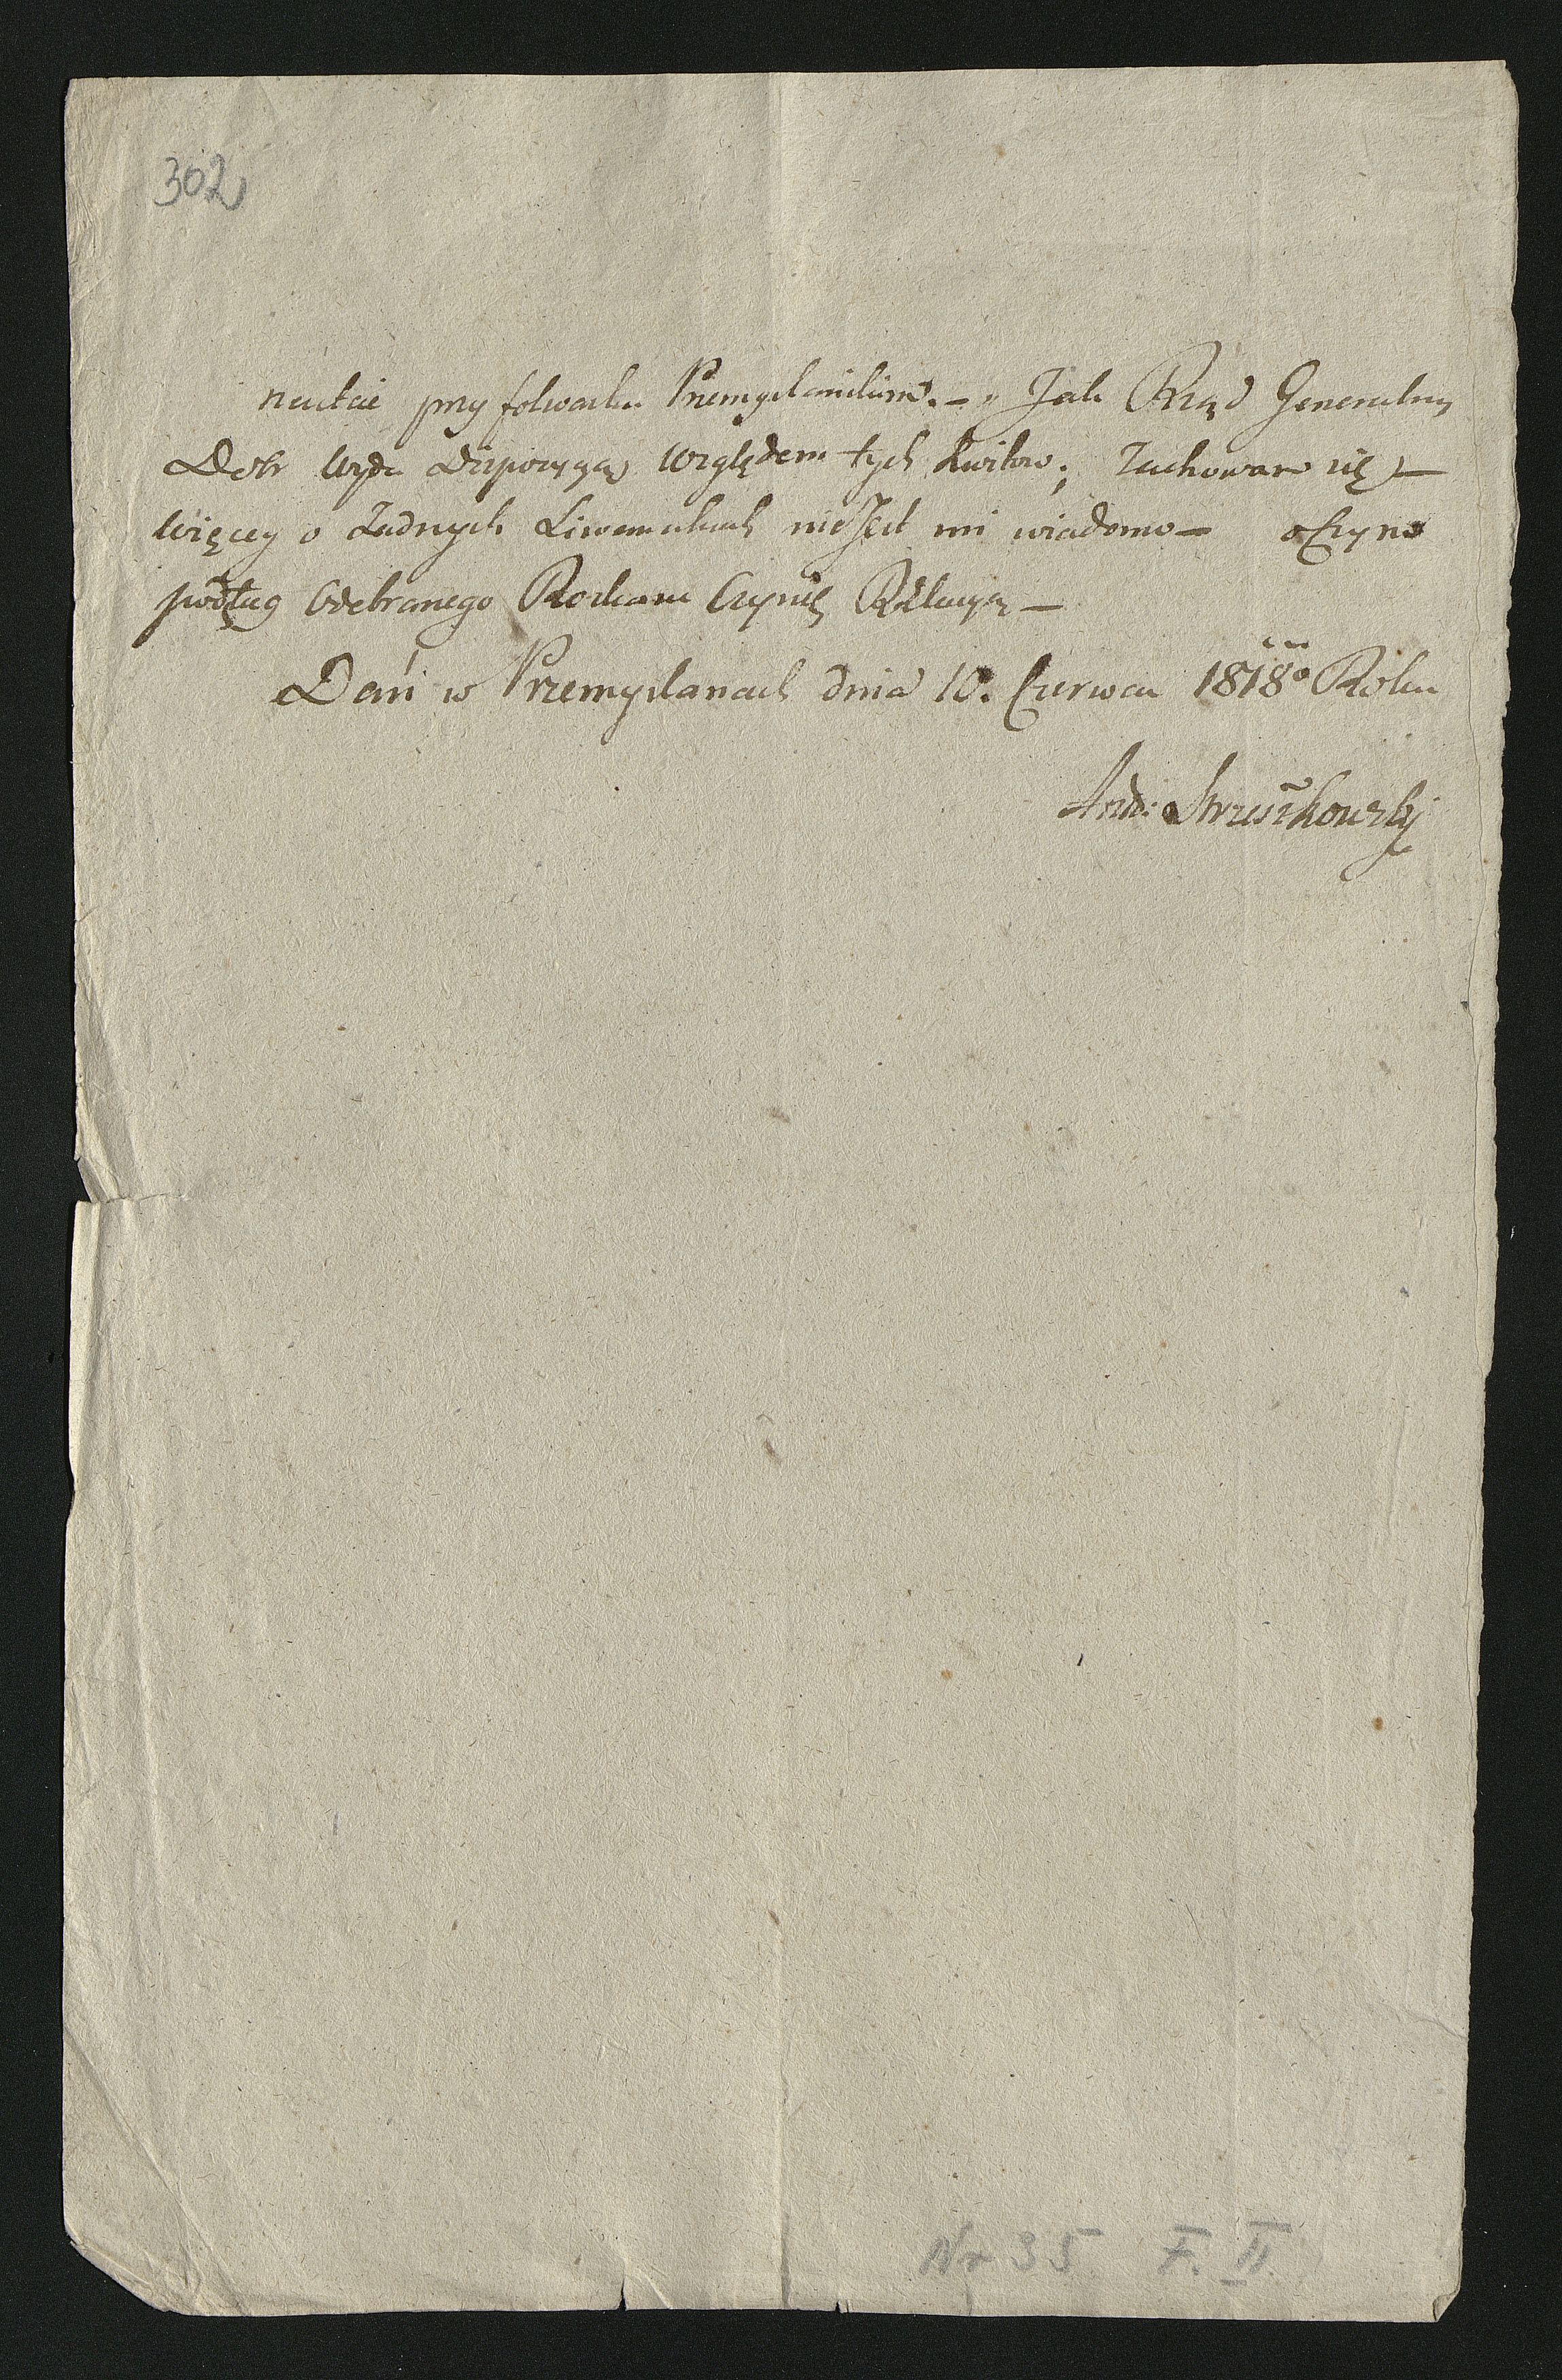 302
przy folwarku Przemyslańskim. – Jak Rząd Generalny
Dobr wyda dispozycyą względem tych kwitow; zachowam się –
więcey o żadnych Liwerunkach nie Jest mi wiadomo –
podług Odebranego Roskazu Czynię Rellacyą –
Dań w Przemyslanach dnia 10. Czerwca 1818º Roku
And:
Nr 35 F. II.